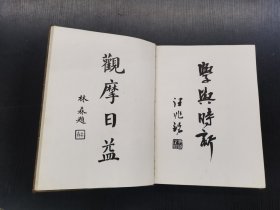 學與時新
汪兆銘
觀摩日益
林森題